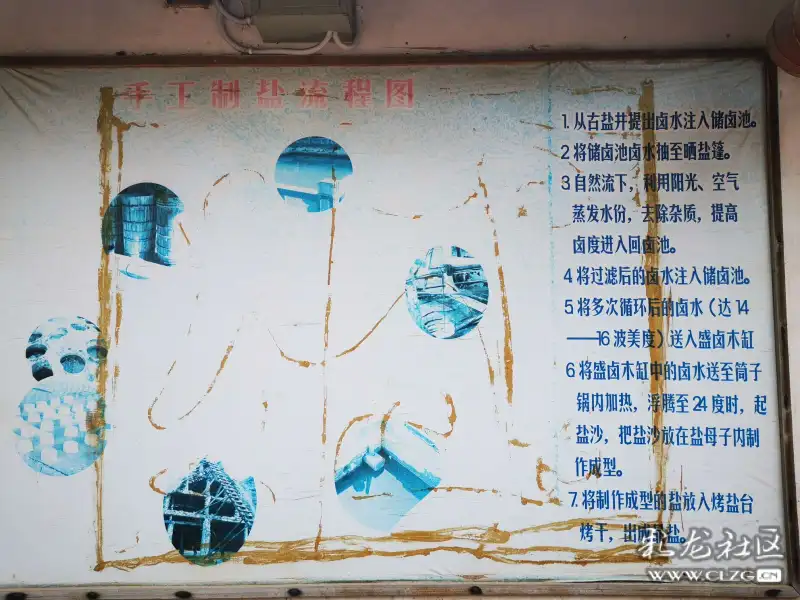 手工制盐流程图
1.从古盐井提出卤水注入储卤池。
2将储卤池卤水抽至晒盐篷。
3自然流下，利用阳光、空气
蒸发水份，去除杂质，提高
卤度进入回卤池。
4将过滤后的卤水注入储卤池。
5将多次循环后的卤水（达14
——16波美度）送入盛卤木缸
6将盛卤木缸中的卤水送至筒子
锅内加热，浮腾至24度时，起
盐沙，把盐沙放在盐母子内制
作成型。
7.将制作成型的盐放入烤盐台
烤干，出成盐。
龙社区
WWW.CLZG.CN